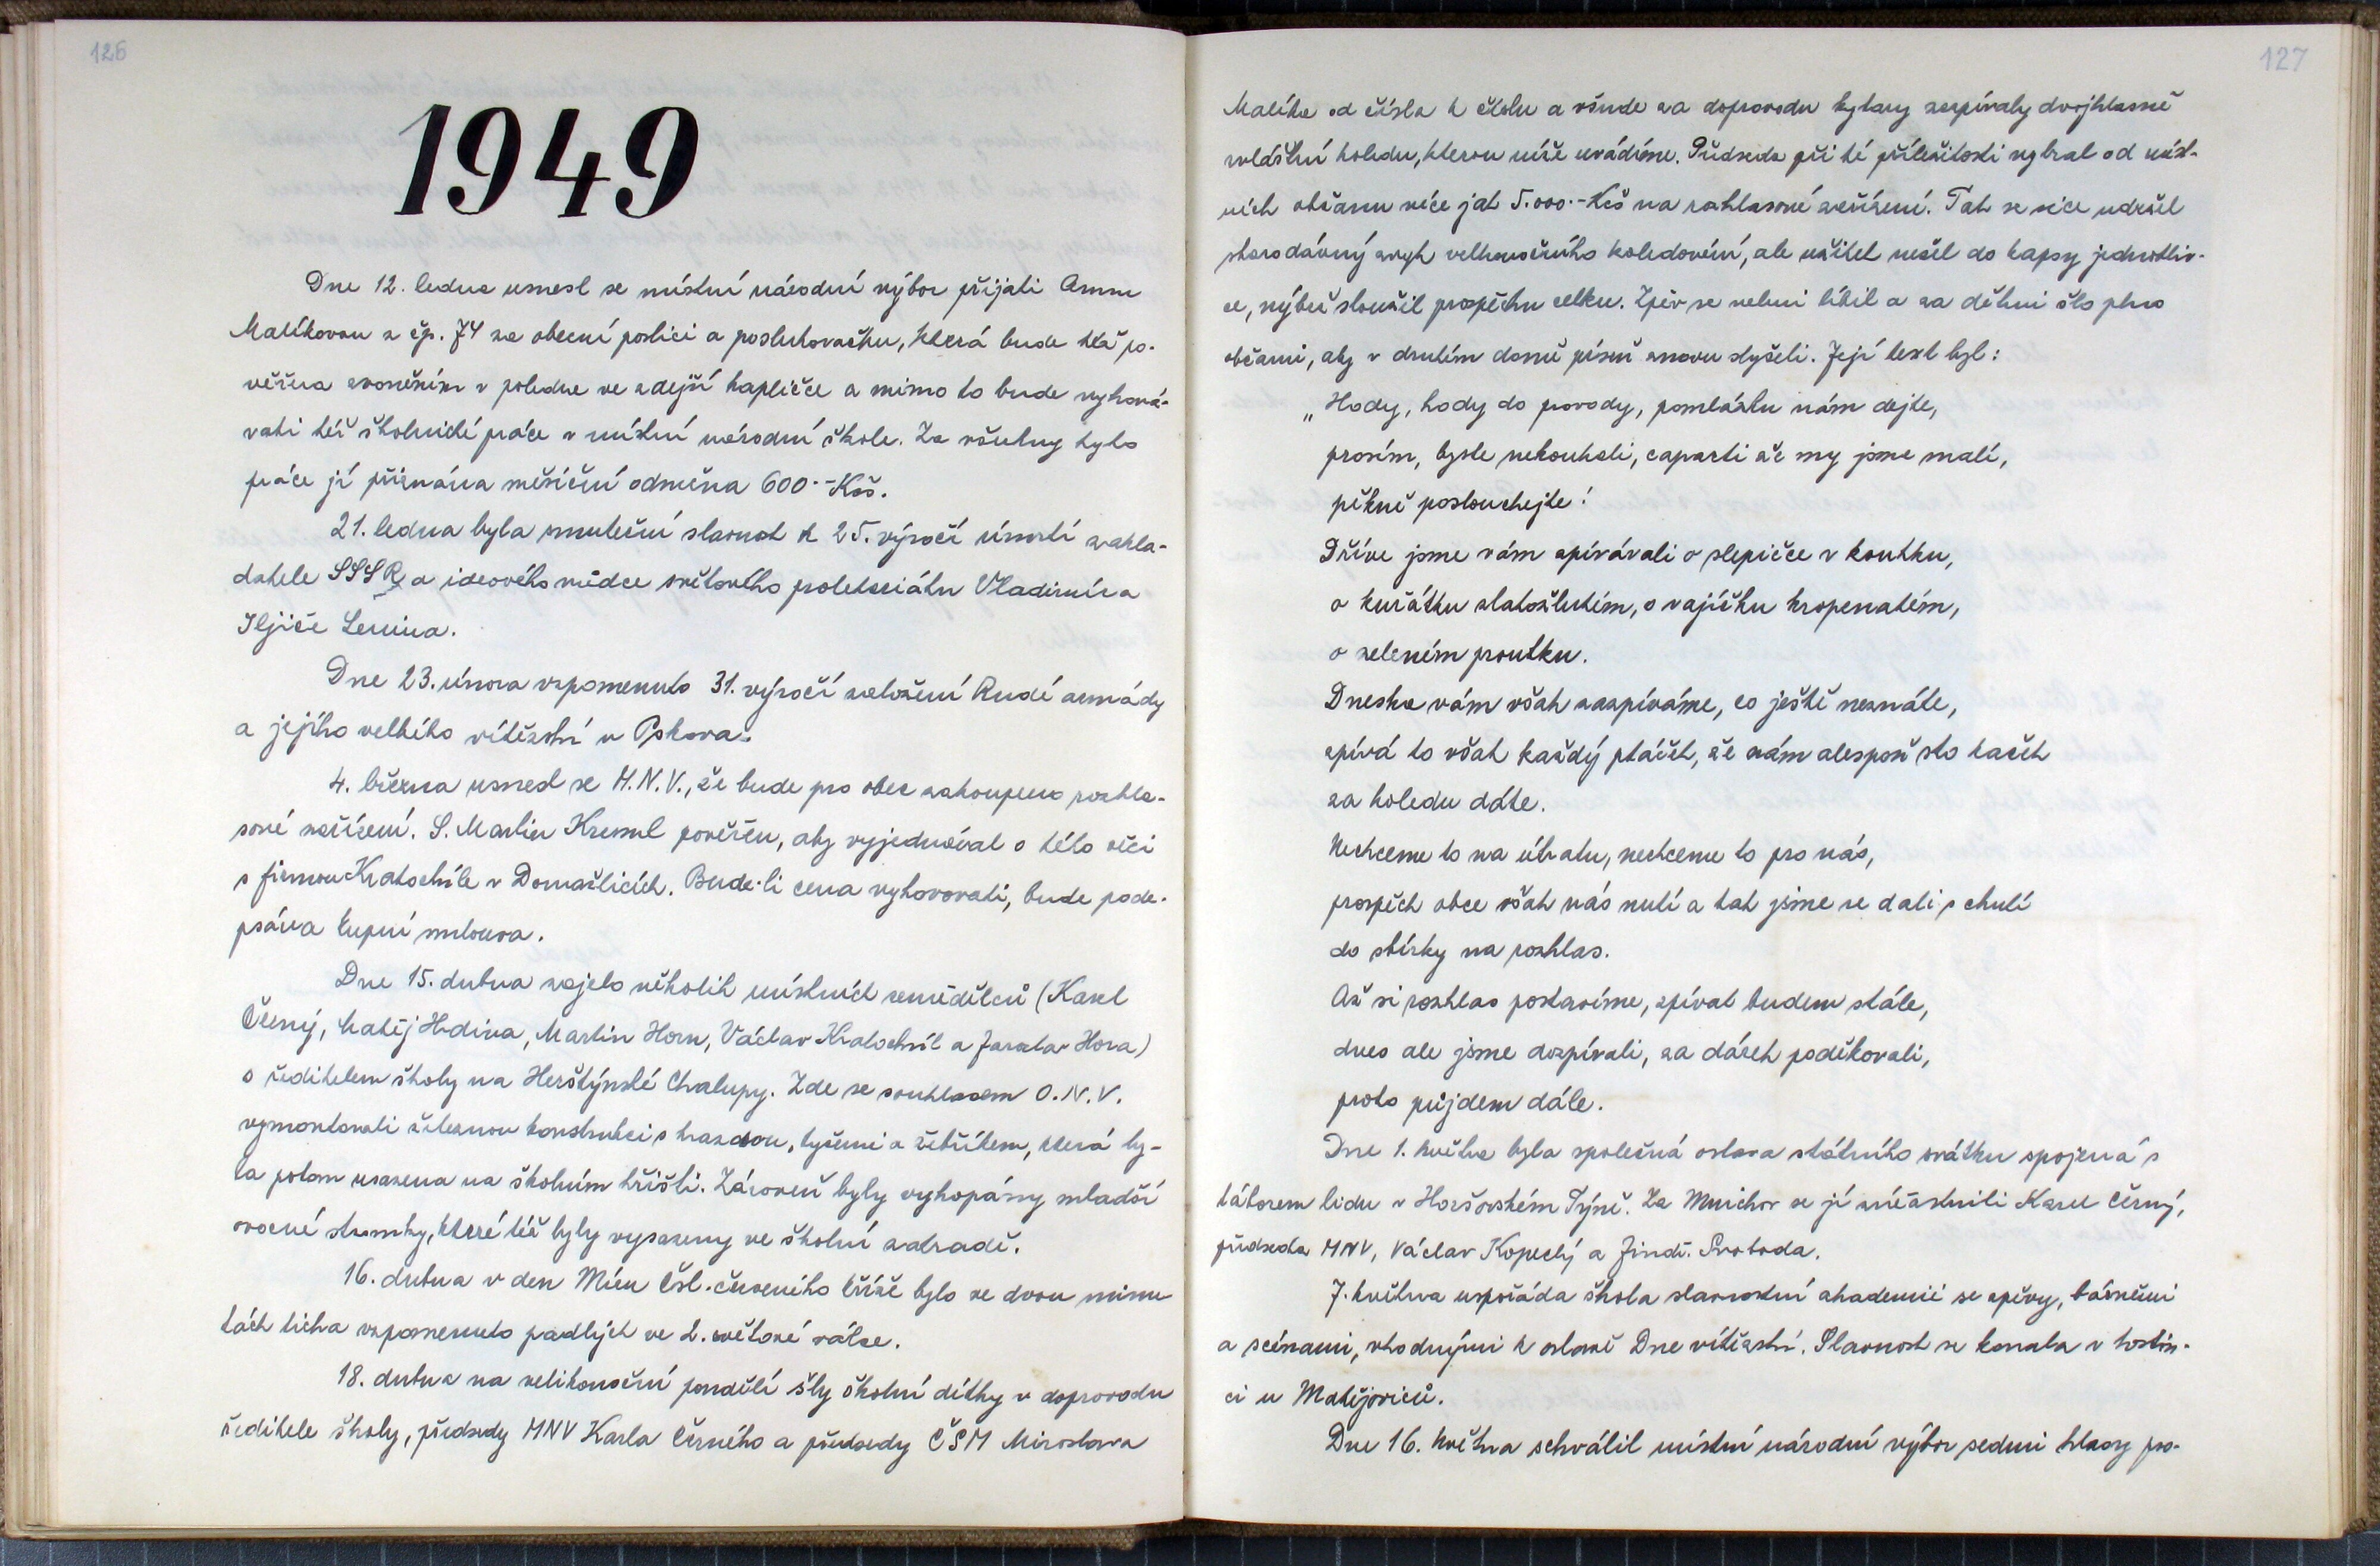 126
1949
Dne 12. ledna usnesl se místní národní výbor přijati Annu
Malíkovou z čp. 74 za obecní poslici a posluhovačku, která bude též po-
věřena zvoněním v poledne ve zdejší kapličce a mimo to bude vykoná-
vati též školnické práce v místní národní škole. Za všechny tyto
práce jí přiznána měsíční odměna 600.-Kčs.
21. ledna byla smuteční slavnost k 25. výročí úmrtí zakla-
datele SSSR a ideového vůdce světového proletariátu Vladimíra
Iljiče Lenina.
Dne 23. února vzpomenuto 31. výročí založení Rudé armády
a jejího velkého vítězství u Pskova.
4. března usnesl se M.N.V., že bude pro obec zakoupeno rozhla-
sové zařízení. S. Martin Kreml pověřen, aby vyjednával o této věci
s firmou Kratochvíle v Domažlicích. Bude-li cena vyhovovati, bude pode-
psána kupní smlouva.
Dne 15. dubna zajelo několik místních zemědělců (Karel
Černý, Matěj Hdina, Martin Horn, Václav Kratochvíl a Jaroslav Hora)
s ředitelem školy na Herštýnské Chalupy. Zde se souhlasem O.N.V.
vymontovali železnou konstrukci s hrazdou, tyčemi a žebříkem, která by-
la potom usazena na školním hřišti. Zároveň byly vykopány mladší
ovocné stromky, které též byly vysazeny ve školní zahradě.
16. dubna v den Míru Čsl. červeného kříže bylo ve dvou minu
tách ticha vzpomenuto padlých ve 2. světové válce.
18. dubna na velikonoční pondělí šly školní dítky v doprovodu
ředitele školy, předsedy MNV Karla Černého a předsedy ČSM Miroslava
127
Malíka od čísla k číslu a všude za doprovodu kytary zazpívaly dvojhlasně
zvláštní koledu, kterou níže uvádíme. Předseda při té příležitosti vybral od míst-
ních občanu více jak 5.000.-Kčs na rozhlasové zařízení. Tak se sice udržel
starodávný zvyk velkonočního koledování, ale užitek nešel do kapsy jednotliv-
ce, nýbrž sloužil prospěchu celku. Zpěv se velmi líbil a za dětmi šlo plno
občanů, aby v druhém domě píseň znovu slyšeli. Její text byl:
„Hody, hody do provody, pomlázku nám dejte,
prosím, byste nekoukali, caparti že my jsme malí,
pěkně poslouchejte!
Dříve jsme vám zpívávali o slepičce v koutku,
o kuřátku zlatožlutém, o vajíčku kropenatém,
o zeleném proutku.
Dneska vám však zazpíváme, co ještě neznáte,
zpívá to však každý ptáček, že nám alespoň sto kaček
za koledu dáte.
Nechceme to na útratu, nechceme to pro nás,
prospěch obce však nás nutí a tak jsme se dali s chutí
do sbírky na rozhlas.
Až si rozhlas postavíme, zpívat budem stále,
dnes ale jsme dozpívali, za dárek poděkovali,
proto půjdem dále.
Dne 1. května byla společná oslava státního svátku spojená s
táborem lidu v Horšovském Týně. Za Mnichov se jí zúčastnili Karel Černý,
předseda MNV, Václav Kopecký a Jindř. Svoboda.
7. května uspořáda škola slavnostní akademii se zpěvy, básněmi
a scénami, vhodnými k oslavě Dne vítězství. Slavnost se konala v hostin-
ci u Matějoviců.
Dne 16. května schválil místní národní výbor sedmi hlasy pro-